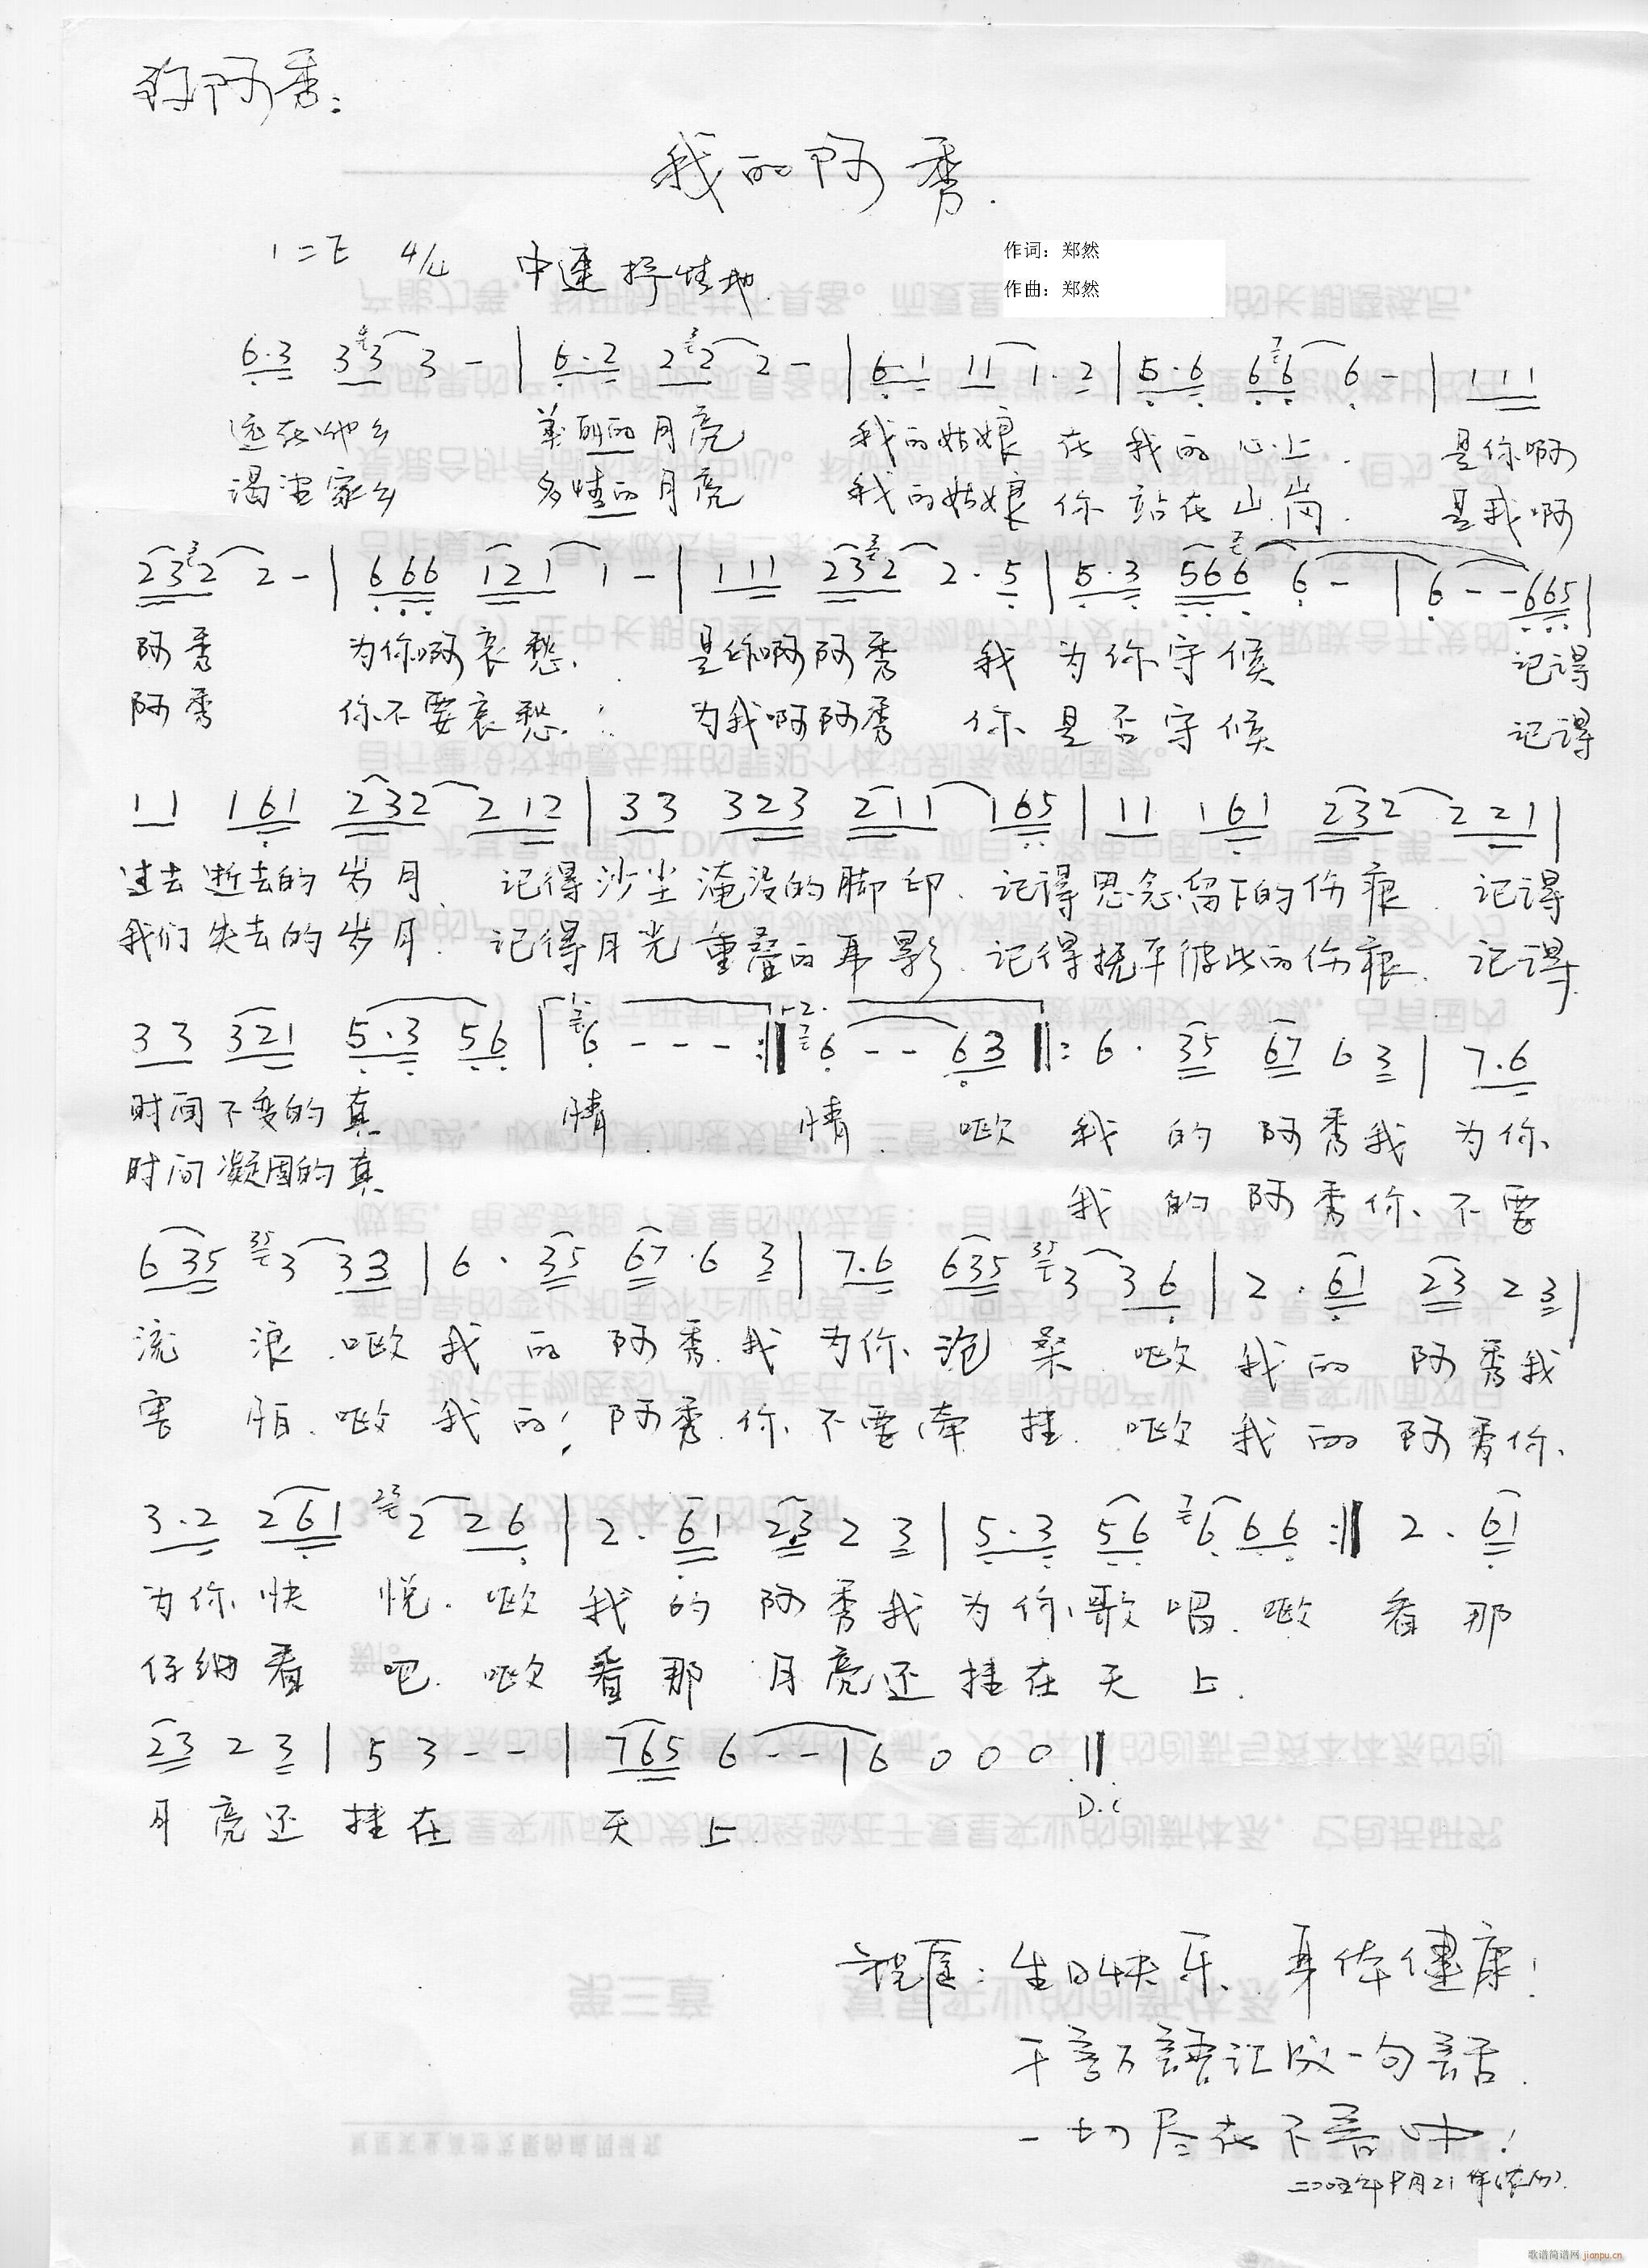 阿秀:
我的阿秀.
1=E 4/4 中速 抒情地.
作词：郑然
作曲：郑然
6·3 3 3 3 - | 6·2 2 2 2 - | 6·1 11 1·2 | 5·6 66 6 - | 111
远在他乡 美丽的月亮 我的姑娘 在我的心上. 是你啊
渴望家乡 多情的月亮 我的姑娘 你站在山岗. 是我啊
232 2 - | 666 121 1 - | 111 232 2·5 | 5·3 566 6 - | 6 - - 665 |
阿秀 为你啊哀愁. 是你啊阿秀 我为你守候 记得
阿秀 你不要哀愁. 为我啊阿秀 你是否守候 记得
11 161 232 212 | 33 323 211 165 | 11 161 232 221 |
过去逝去的岁月. 记得沙尘淹没的脚印. 记得思念留下的伤痕. 记得
我们失去的岁月. 记得月光重叠的耳影. 记得抚平彼此的伤痕. 记得
33 321 5·3 56 | 6 - - - :|| 6 - - 63 ||: 6· 35 67 6 3 | 7·6
时间不变的真 情. 情. 呕 我的阿秀我为你
时间凝固的真 我的阿秀你不要
635 3 33 | 6· 35 67·6 3 | 7·6 635 3 36 | 2· 61 23 2 3 |
流浪. 呕我的阿秀. 我为你沧桑. 呕我的阿秀我
害怕. 呕我的阿秀. 你不要牵挂. 呕我的阿秀你
3·2 261 2 26 | 2· 61 23 2 3 | 5·3 56 6 66 :|| 2· 61
为你快悦. 呕我的阿秀我为你歌唱. 呕看那
仔细看吧. 呕看那月亮还挂在天上.
23 2 3 | 5 3 - - | 765 6 - - | 6 0 0 0 ||
D.C
月亮还挂在天上.
生日快乐、身体健康!
千言万語汇成一句話.
一切尽在不言中!
二00五年9月21
歌谱简谱网 jianpu.cn